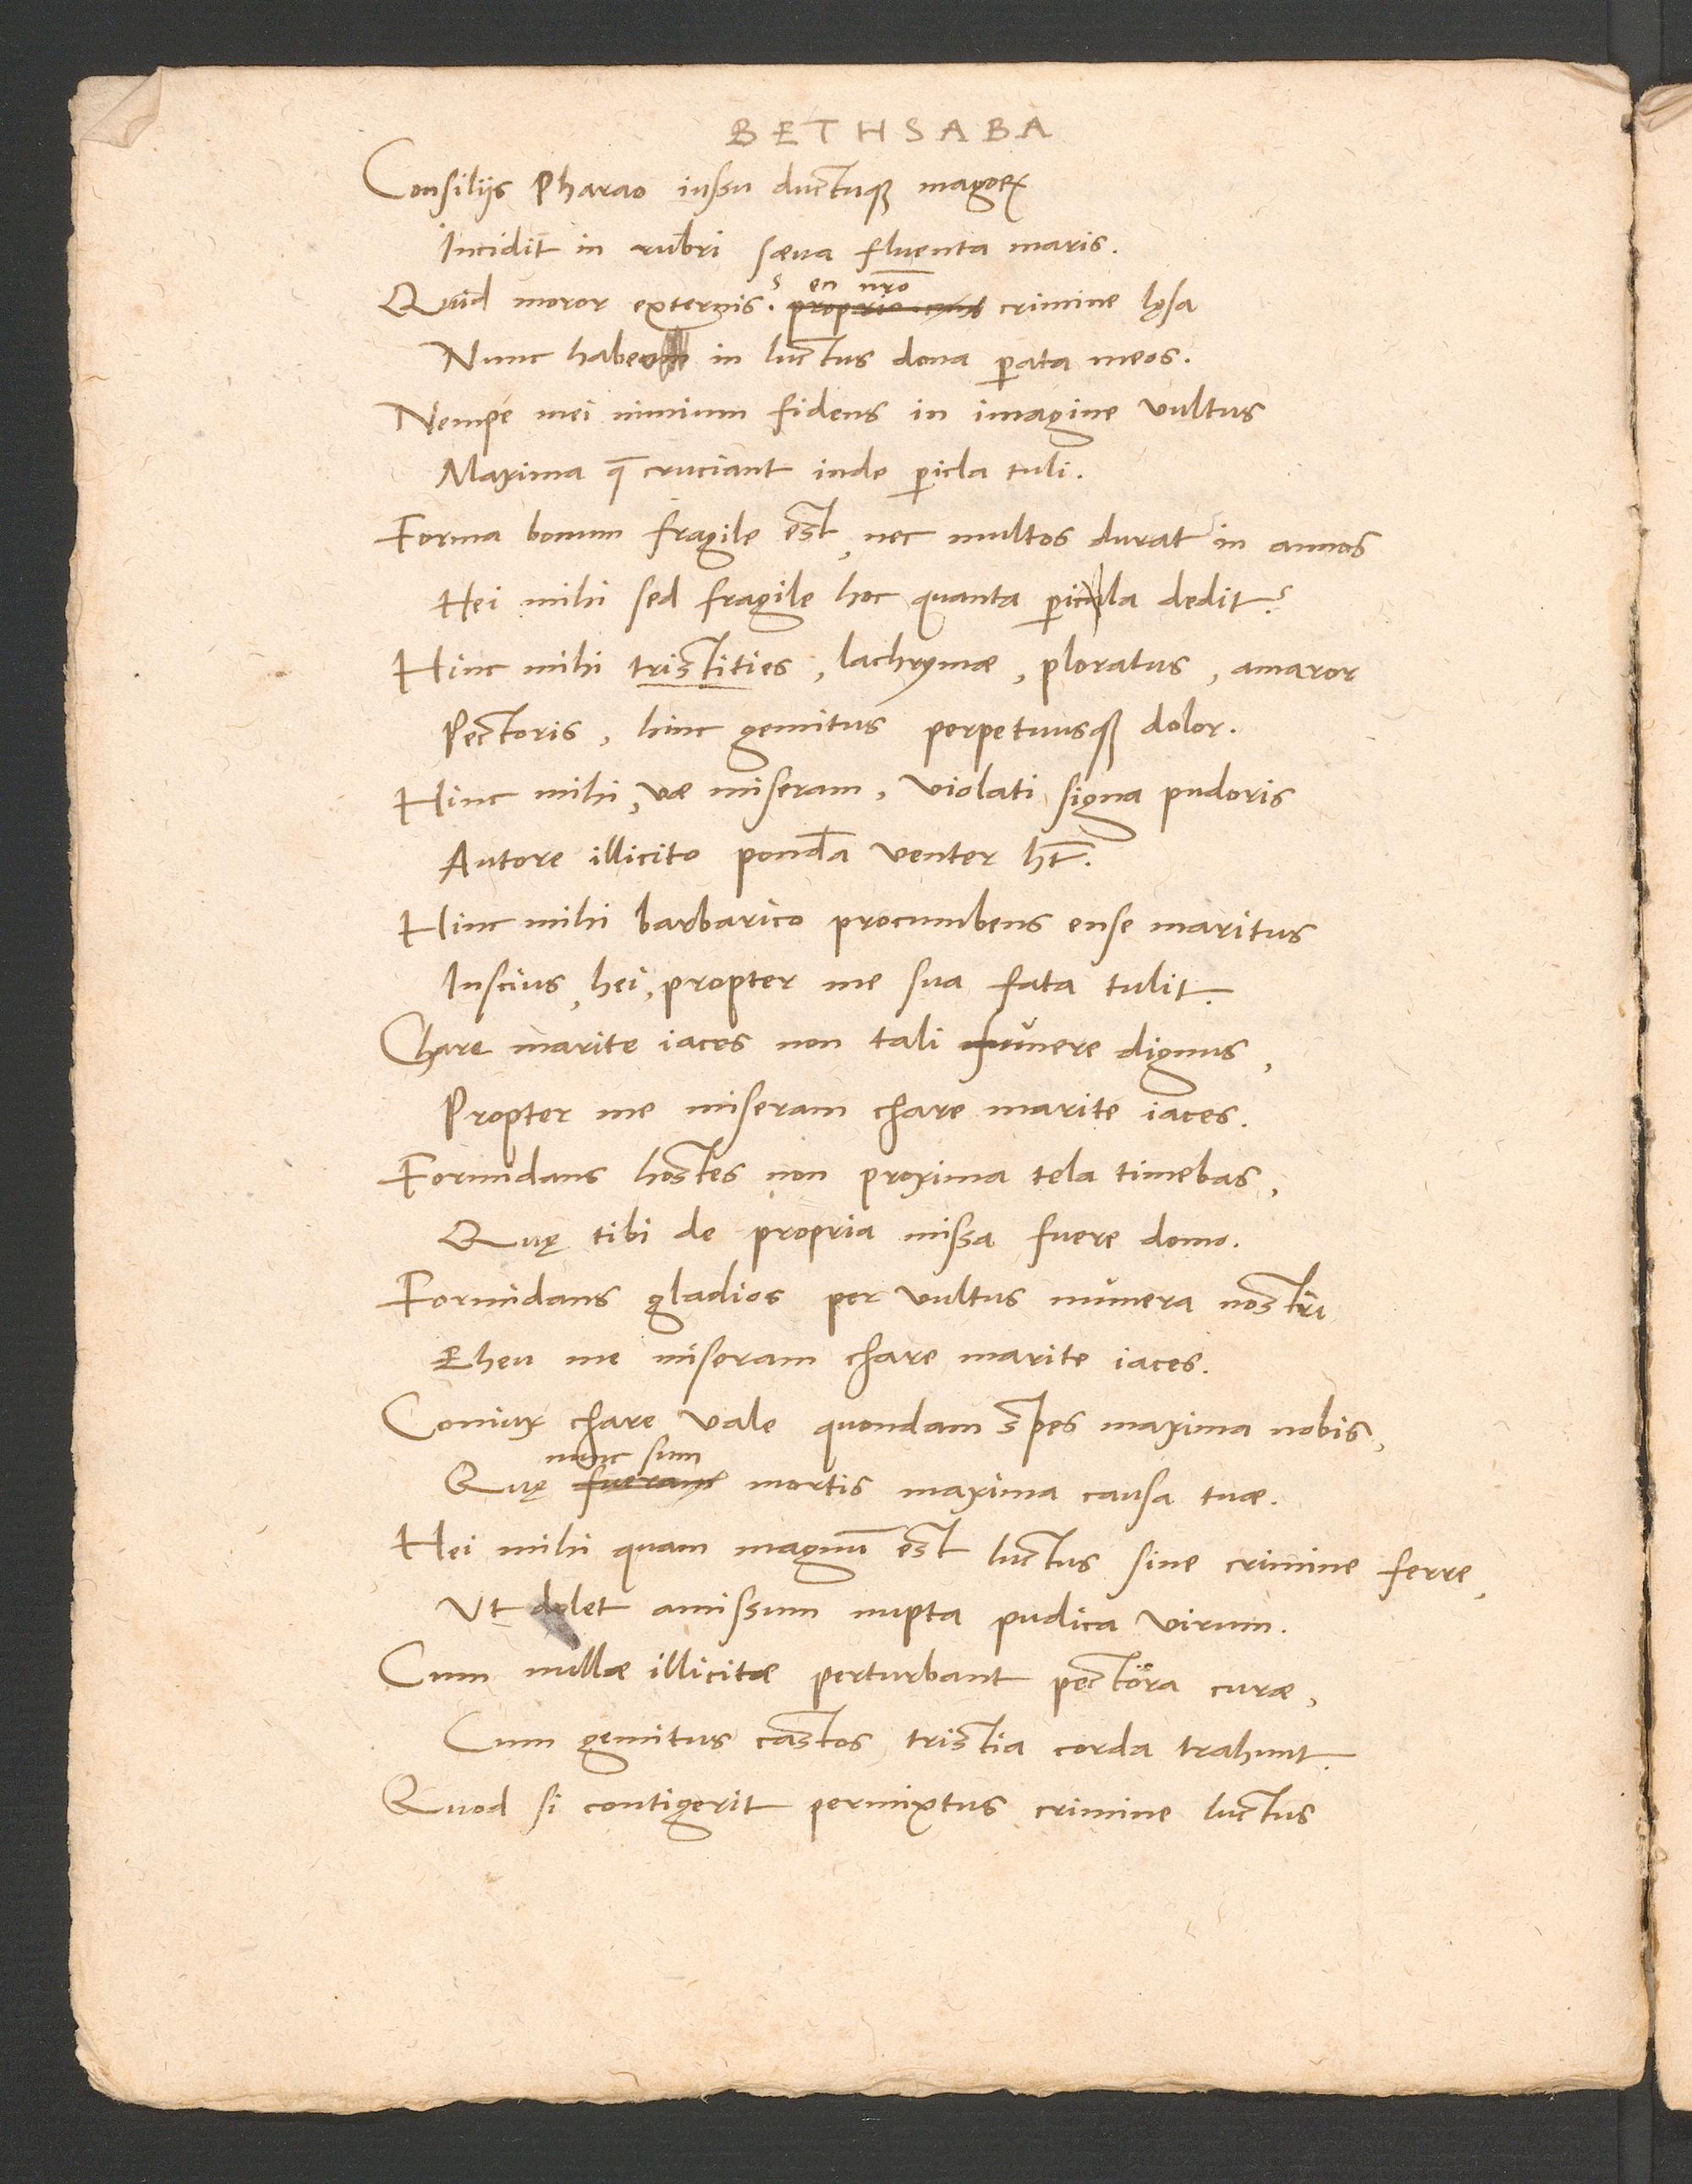 BETHSABA
Consilijs Pharao iussu ductuqꝫ magoꝝ
Incidit in rubri sæua fluenta maris.
en nr̄o
Quid moror externis? proprio crimine lęsa
Nunc habeo in luctus dona ꝑata meos.
Nempe mei nimium fidens in imagine vultus
Maxima q̄ cruciant inde ꝑicla tuli.
Forma bonum fragile est, nec multos durat in annos
Hei mihi sed fragile hoc quanta ꝑicula dedit?
Hinc mihi tristities, lachrymæ, ploratus, amaror
Pectoris, hinc gemitus perpetuusqꝫ dolor.
Hinc mihi, væ miseram, violati signa pudoris
Autore illicito pond̄a venter ht̄.
Hinc mihi barbarico procumbens ense maritus
Inscius, hei, propter me sua fata tulit.
Chare marite iaces non tali funere dignus,
Propter me miseram chare marite iaces.
Formidans hostes non proxima tela timebas,
Quę tibi de propria missa fuere domo.
Formidans gladios per vultus munera nostri
Eheu me miseram chare marite iaces.
Coniux chare vale quondam spes maxima nobis,
nunc sum
Quę fueram mortis maxima causa tuæ.
Hei mihi quam magnū est luctus sine crimine ferre,
Vt dolet amissum nupta pudica virum.
Cum nullæ illicitæ perturbant pectora curæ,
Cum gemitus castos tristia corda trahunt.
Quod si contigerit permixtus crimine luctus